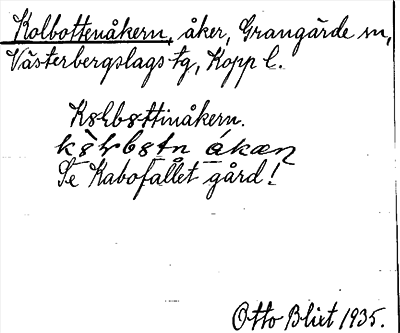 Kolbottenåkern, åker, Grangärde sn,
Västerbergslags tg, Kopp l.
Kɷɽbɷttinåkern.
Se Kabofallet gård!
Otto Blixt 1935.